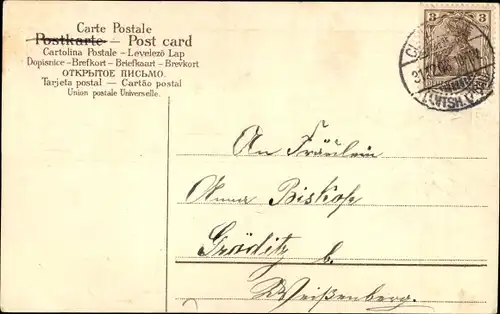 Carte Postale
Postkarte – Post card
Cartolina Postale – Levelező Lap
Dopisnice – Brefkort – Briefkaart – Brevkort
ОТКРЫТОЕ ПИСЬМО.
Tarjeta postal – Cartão postal
Union postale Universelle.
3 3
An Fräulein
Anna Biskop
Gröditz b.
Weißenberg.